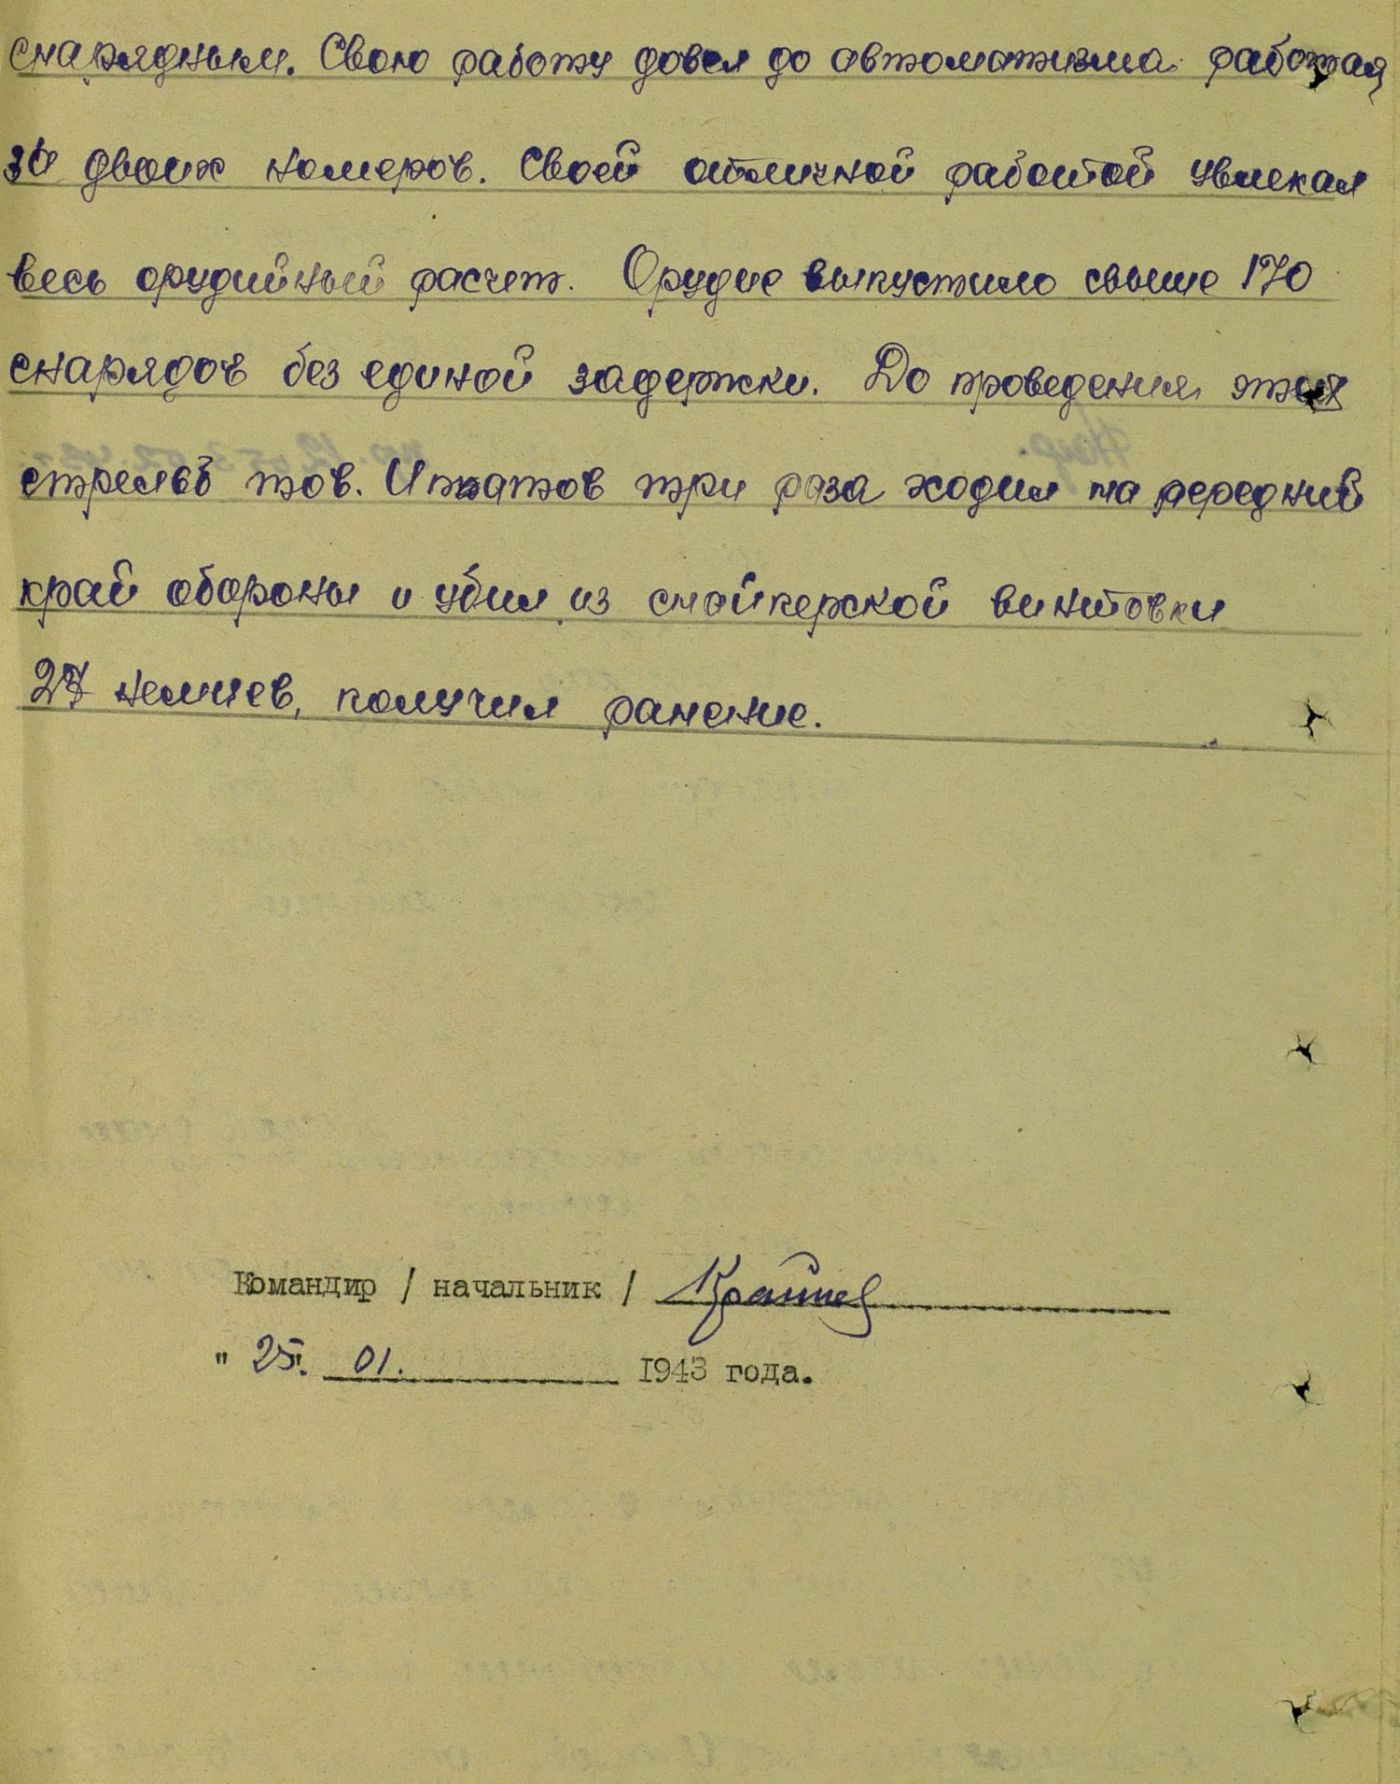 снарядным. Свою работу довел до автоматизма работая
за двоих номеров. Своей отличной работой увлекал
весь орудийный расчет. Орудие выпустило свыше 170
снарядов без единой задержки. До проведения этих
стрельб тов. Игнатов три раза ходил на передний
край обороны и убил из снайперской винтовки
27 немцев, получил ранение.
Командир / начальник /
" 25". 01. 1943 года.